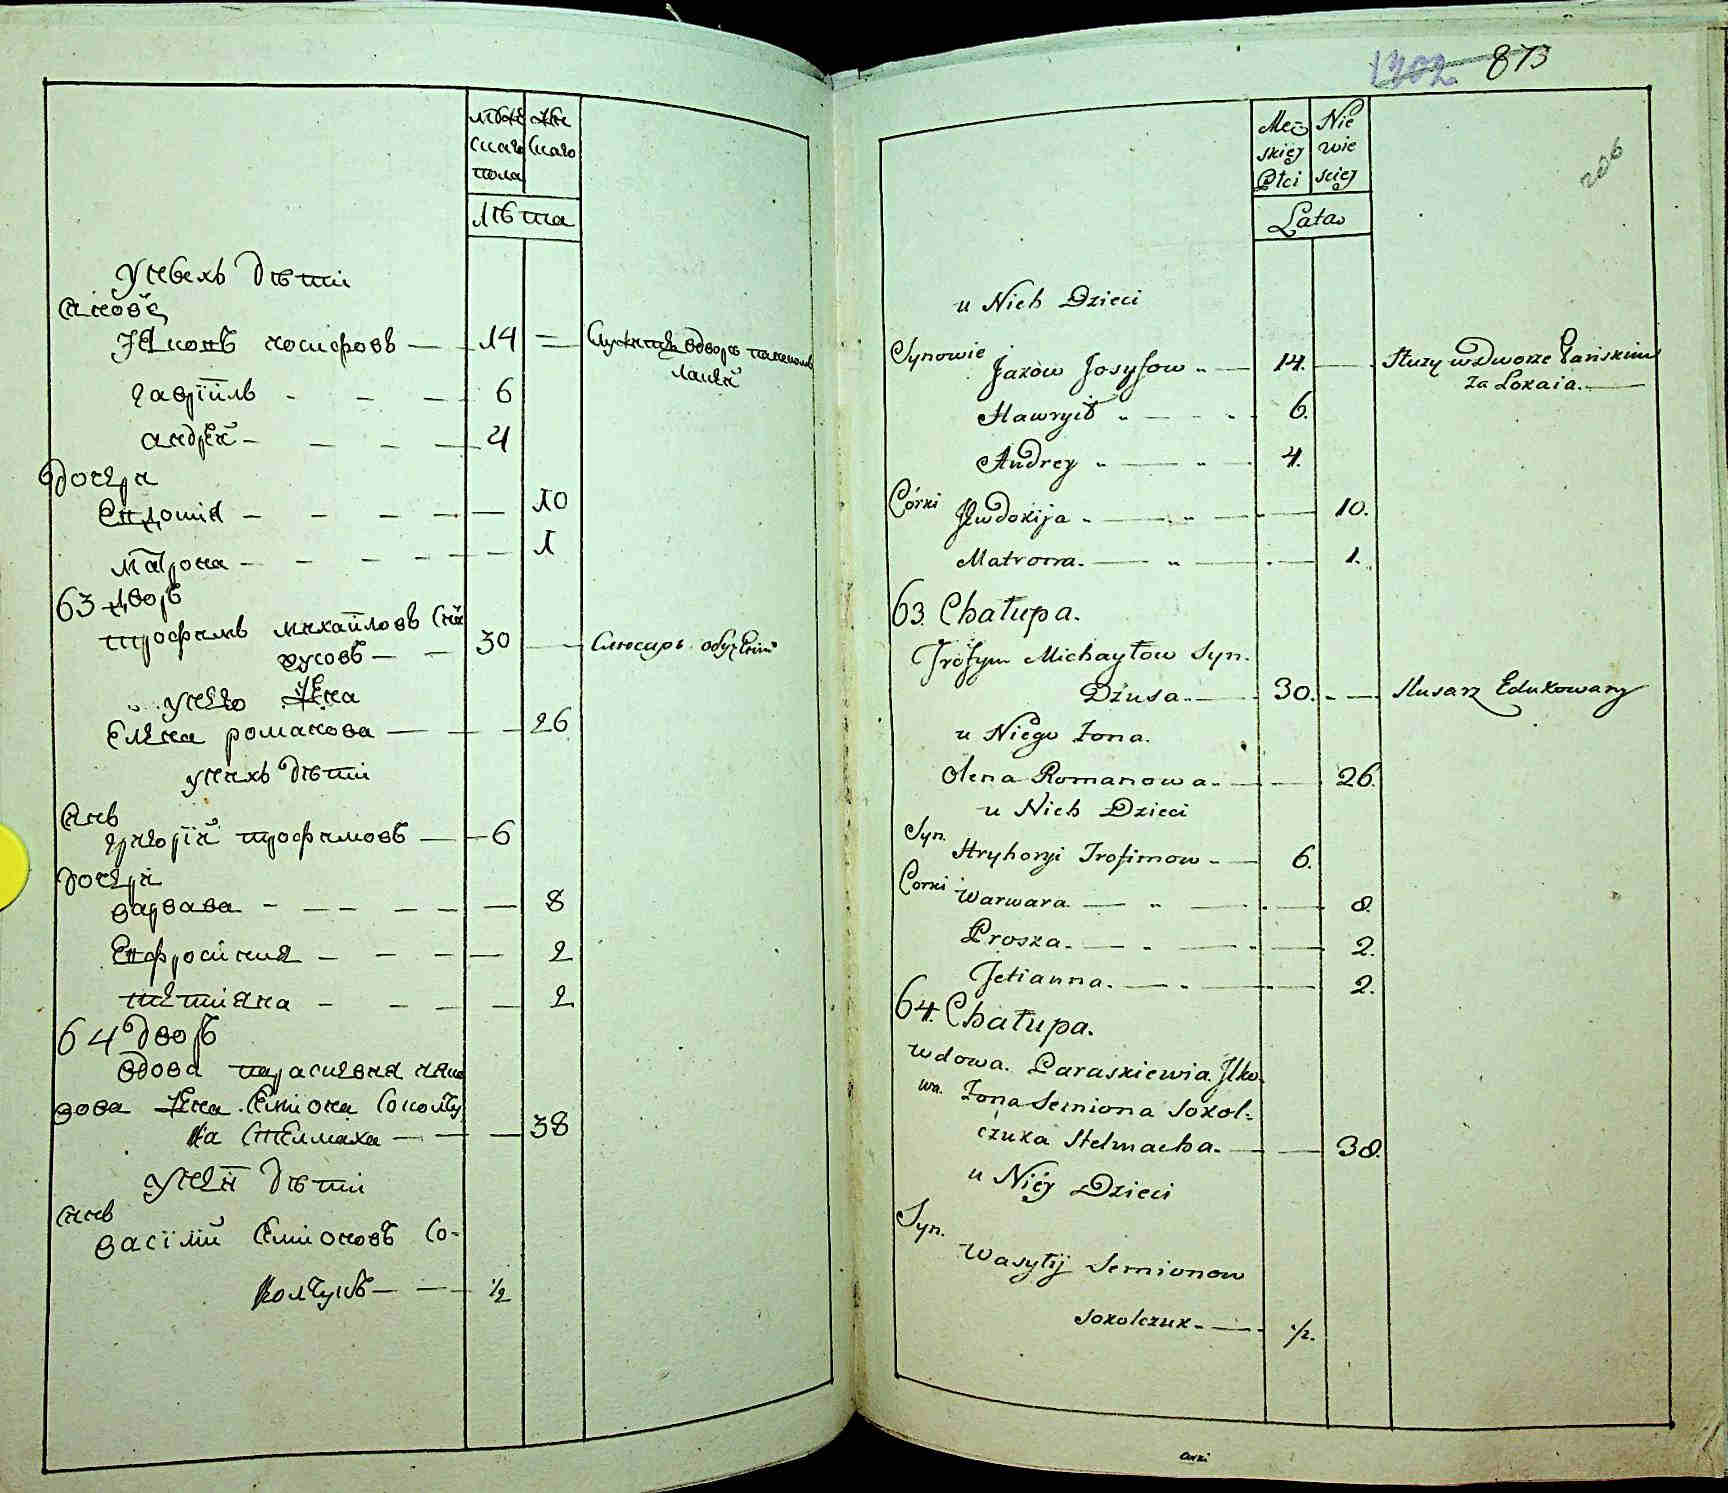 мужеска жен
скаго скаго
пола
Лѣта
у нехъ дѣти
синове
Якопъ иосифовъ — 14 = Служитъ в дворѣ панскомъ
лакей
гавріилъ - - - 6
андрей - - - 4
дочери
Евдошия - - - - 10
матрона - - - - 1
63 дворъ
трофимъ михайловъ син
дзусовъ — 30 — Слюсаръ обучений
у него жена
Елена романова — 26
у нихъ дѣти
синъ
григорій трофимовъ — 6
дочери
варвара - - - - 8
Ефросиния - - - - 2
тетияна - - - 2
64 дворъ
вдова парасковия илко
вова жена Семиона соколчу
ка стелмаха — 38
у неи дѣти
синъ
василий Семионовъ Со-
колчукъ — 1/2
1302 873
206
Męz Nie
skiej wie
Płci sciej
Lata
u Nich Dzieci
Synowie
Jaków Josyfow - — 14. — Służy w Dworze Pańskim
za Lokaia.
Hawryił - — - 6.
Andrey - — - 4.
Córki
Jewdokija - — - — 10.
Matrona. — - — 1.
63. Chałupa.
Trofym Michayłow Syn.
Dzusa. — 30. — Slusarz Edukowany
u Niego Żona.
Olena Romanowa. — 26.
u Nich Dzieci
Syn.
Hryhoryi Trofimow - — 6.
Corki
Warwara — - — 8.
Proska. — - — 2.
Tetianna. — - — 2.
64. Chałupa.
wdowa. Paraskiewia. Ilko
wa. Żona Semiona Sokol=
czuka Stelmacha. — 38.
u Niéj Dzieci
Syn.
Wasylij Semionow
Sokolczuk. — 1/2.
Corki